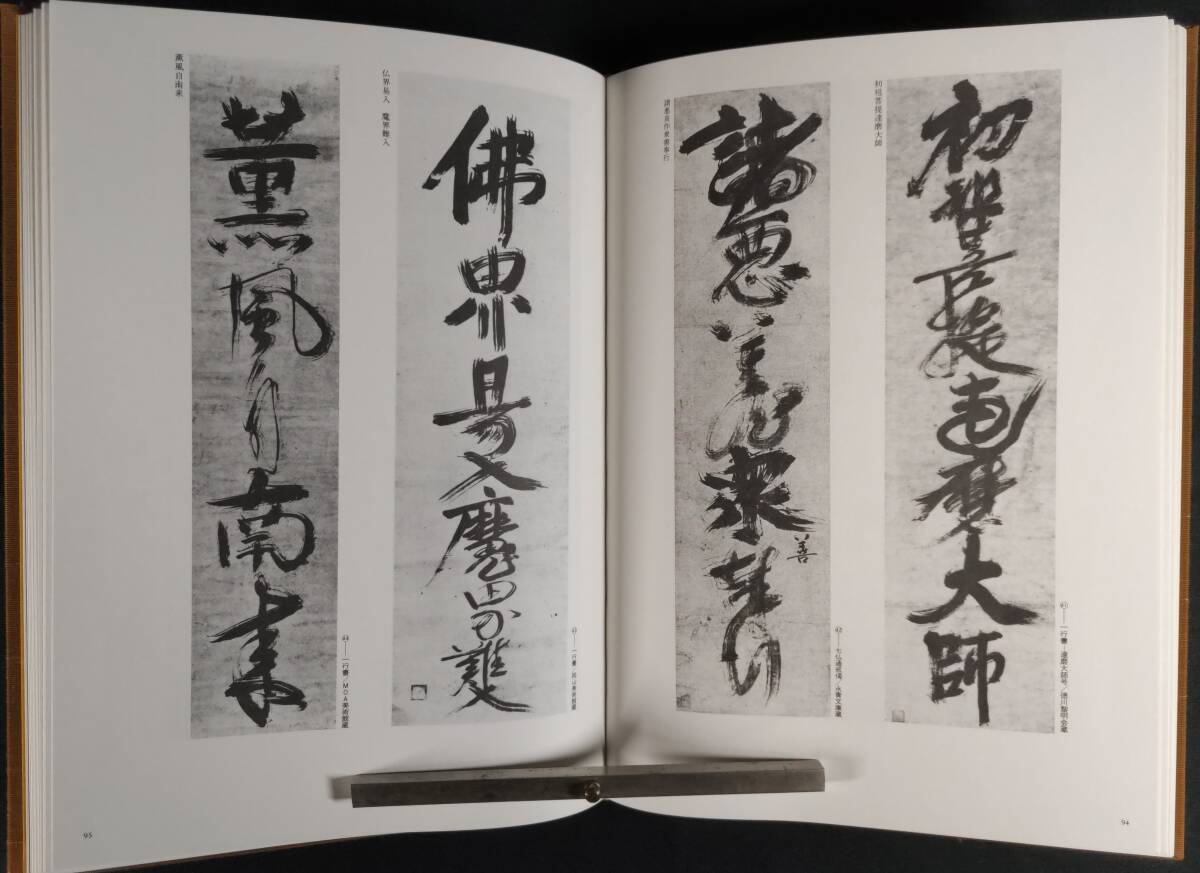 初祖菩提達磨大師
初祖菩提達磨大師
㊶――一行書／達磨大師号／徳川黎明会蔵
諸悪莫作衆善奉行
諸悪莫作衆奉行
善
㊷――七仏通戒偈／永青文庫蔵
94
仏界易入　魔界難入
佛界易入魔界難
㊸――一行書／岡山美術館蔵
薫風自南来
薫風自南来
㊹――一行書／MOA美術館蔵
95